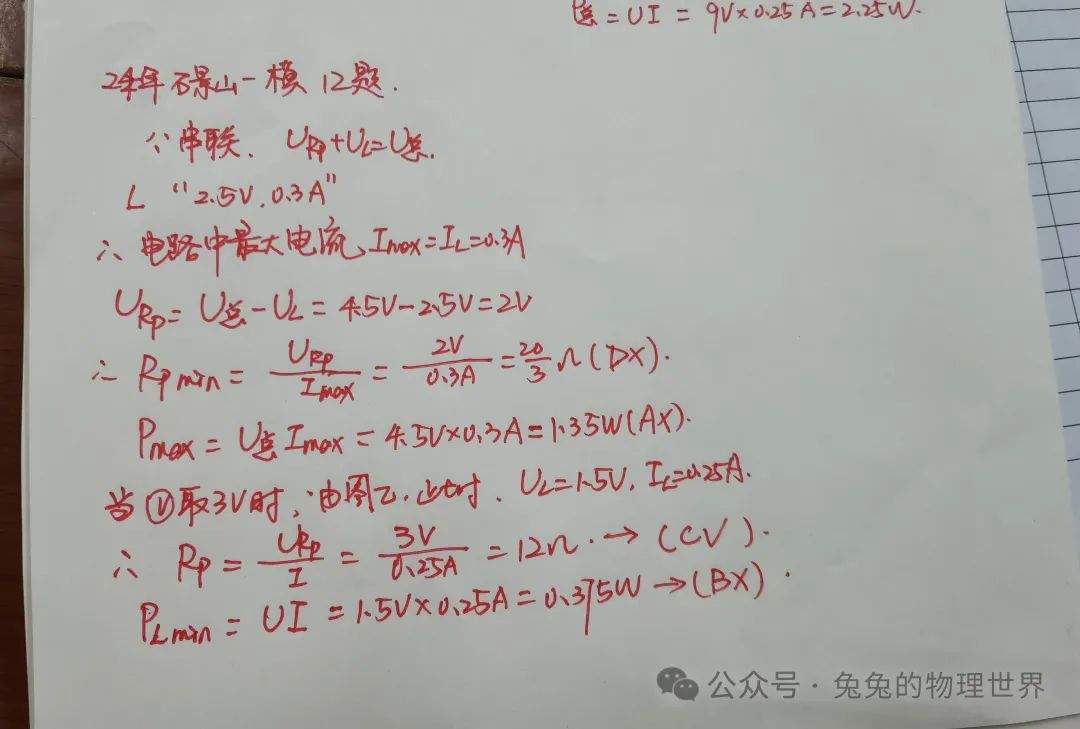 P总 = UI = 9V×0.25A = 2.25W.
24年石景山一模 12题.
∵串联. URp+UL=U总.
L “2.5V, 0.3A”
∴ 电路中最大电流 Imax=IL=0.3A
URp= U总-UL = 4.5V-2.5V=2V
∴ Rpmin = URp/Imax = 2V/0.3A = 20/3 Ω (D×).
Pmax = U总Imax = 4.5V×0.3A=1.35W(A×).
当Ⓥ取3V时, 由图乙. 此时. UL=1.5V, IL=0.25A.
∴ Rp = URp/I = 3V/0.25A = 12Ω. → (C√).
PLmin = UI = 1.5V×0.25A = 0.375W → (B×).
公众号 · 兔兔的物理世界